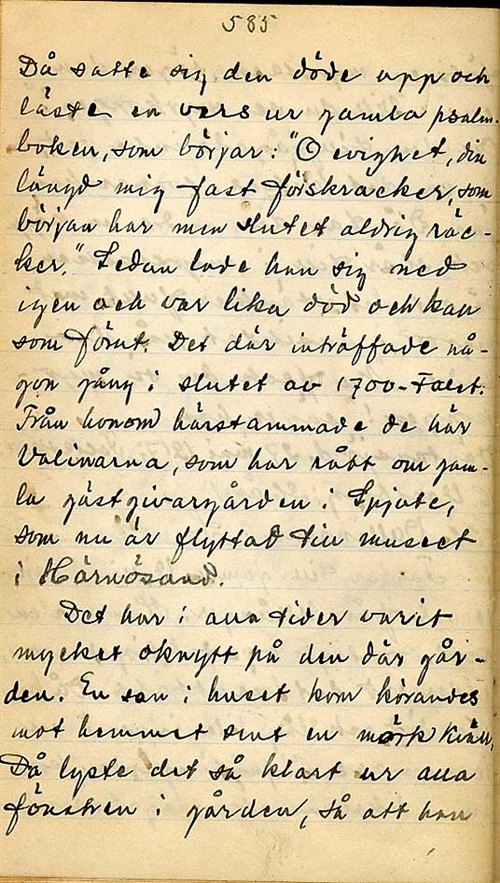 585
Då satte sig den döde upp och
läste en vers ur gamla psalm-
boken, som börjar: "O evighet, din
längd mig fast förskräcker, som
början har men slutet aldrig räc-
ker." Sedan lade han sig ned
igen och var lika död och kall
som förut. Det där inträffade nå-
gon gång i slutet av 1700-talet.
Från honom härstammade de här
Valinarna, som har rått om gam-
la gästgivargården i Spjute,
som nu är flyttad till museet
i Härnösand.
Det har i alla tider varit
mycket oknytt på den där går-
den. En son i huset kom körandes
mot hemmet sent en mörk kväll,
Då lyste det så klart ur alla
fönstren i gården, så att han